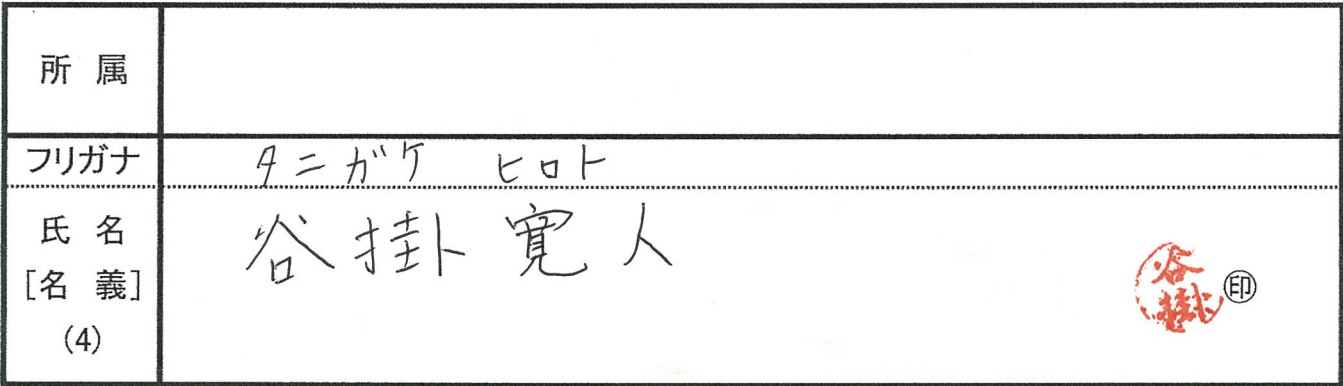 所 属
フリガナ タニガケ ヒロト
氏 名
[名 義]
(4)
谷掛 寛人
谷掛
㊞